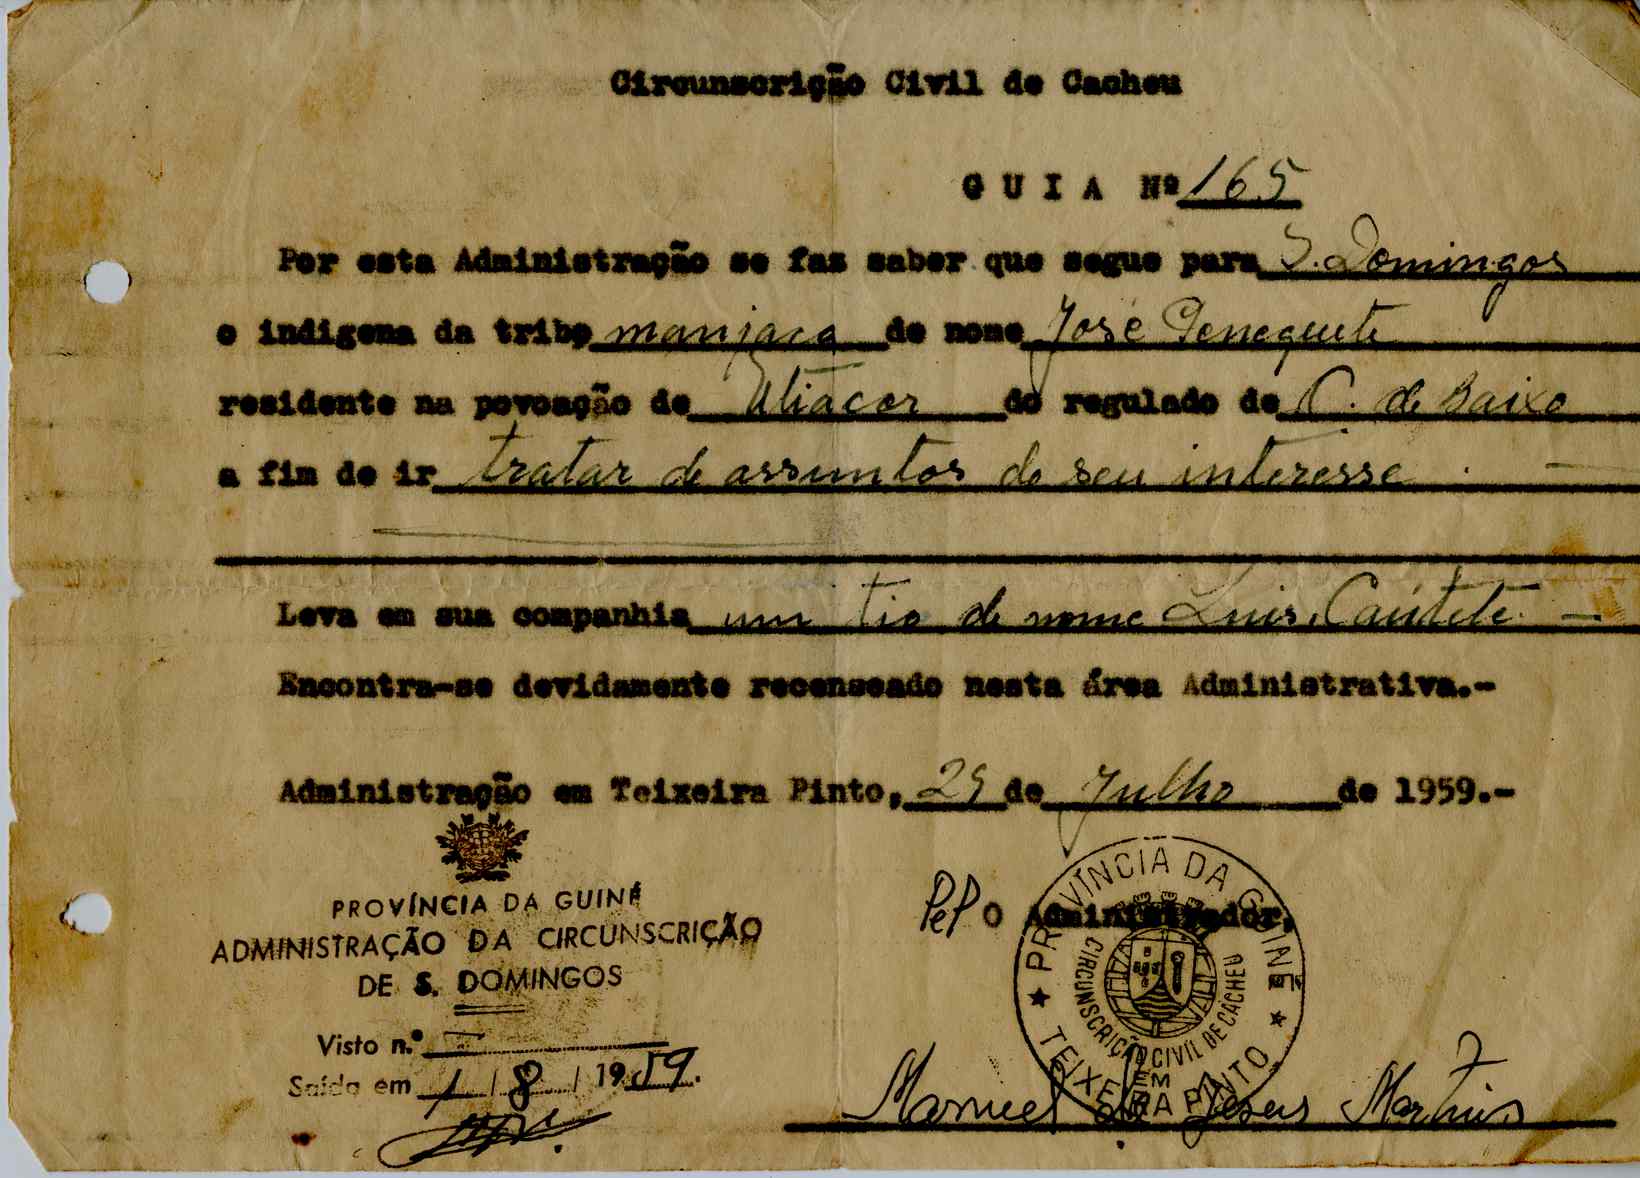 Circunscrição Civil de Cacheu
GUIA Nº 165
Por esta Administração se faz saber que segue para S. Domingos
o indigena da tribo manjaca de nome José
residente na povoação de do regulado de C. de Baixo
a fim de ir tratar de assuntos de seu interesse. —
Leva em sua companhia um tio de nome Luis Caútete. —
Encontra-se devidamente recenseado nesta área Administrativa.-
Administração em Teixeira Pinto, 29 de Julho de 1959.-
PROVÍNCIA DA GUINÉ
ADMINISTRAÇÃO DA CIRCUNSCRIÇÃO
DE S. DOMINGOS
Visto n.º
Saída em 1 / 8 / 1959.
Pel O Administrador,
PROVÍNCIA DA GUINÉ
CIRCUNSCRIÇÃO CIVIL DE CACHEU
EM
TEIXEIRA PINTO
Manuel de Jesus Martins